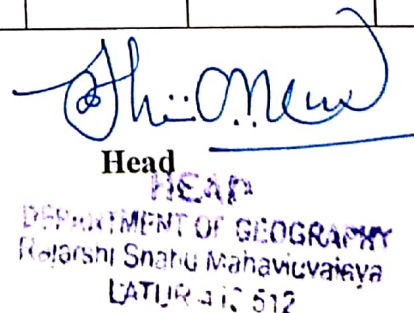 Head
HEAD
DEPARTMENT OF GEOGRAPHY
Rajarshi Shahu Mahavidyalaya
LATUR 512